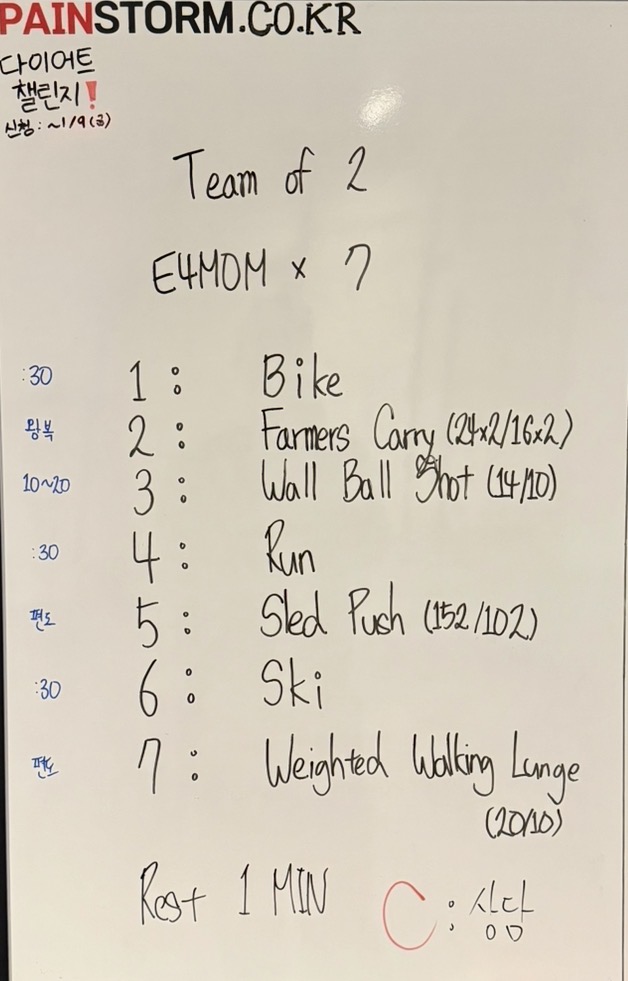 PAINSTORM.CO.KR
다이어트
챌린지!
신청 : ~1/9(금)
Team of 2
E4MOM x 7
:30 1 : Bike
왕복 2 : Farmers Carry (24x2/16x2)
10~20 3 : Wall Ball Shot (14/10)
:30 4 : Run
편도 5 : Sled Push (152/102)
:30 6 : Ski
편도 7 : Weighted Walking Lunge
(20/10)
Rest 1 MIN
C : 상담